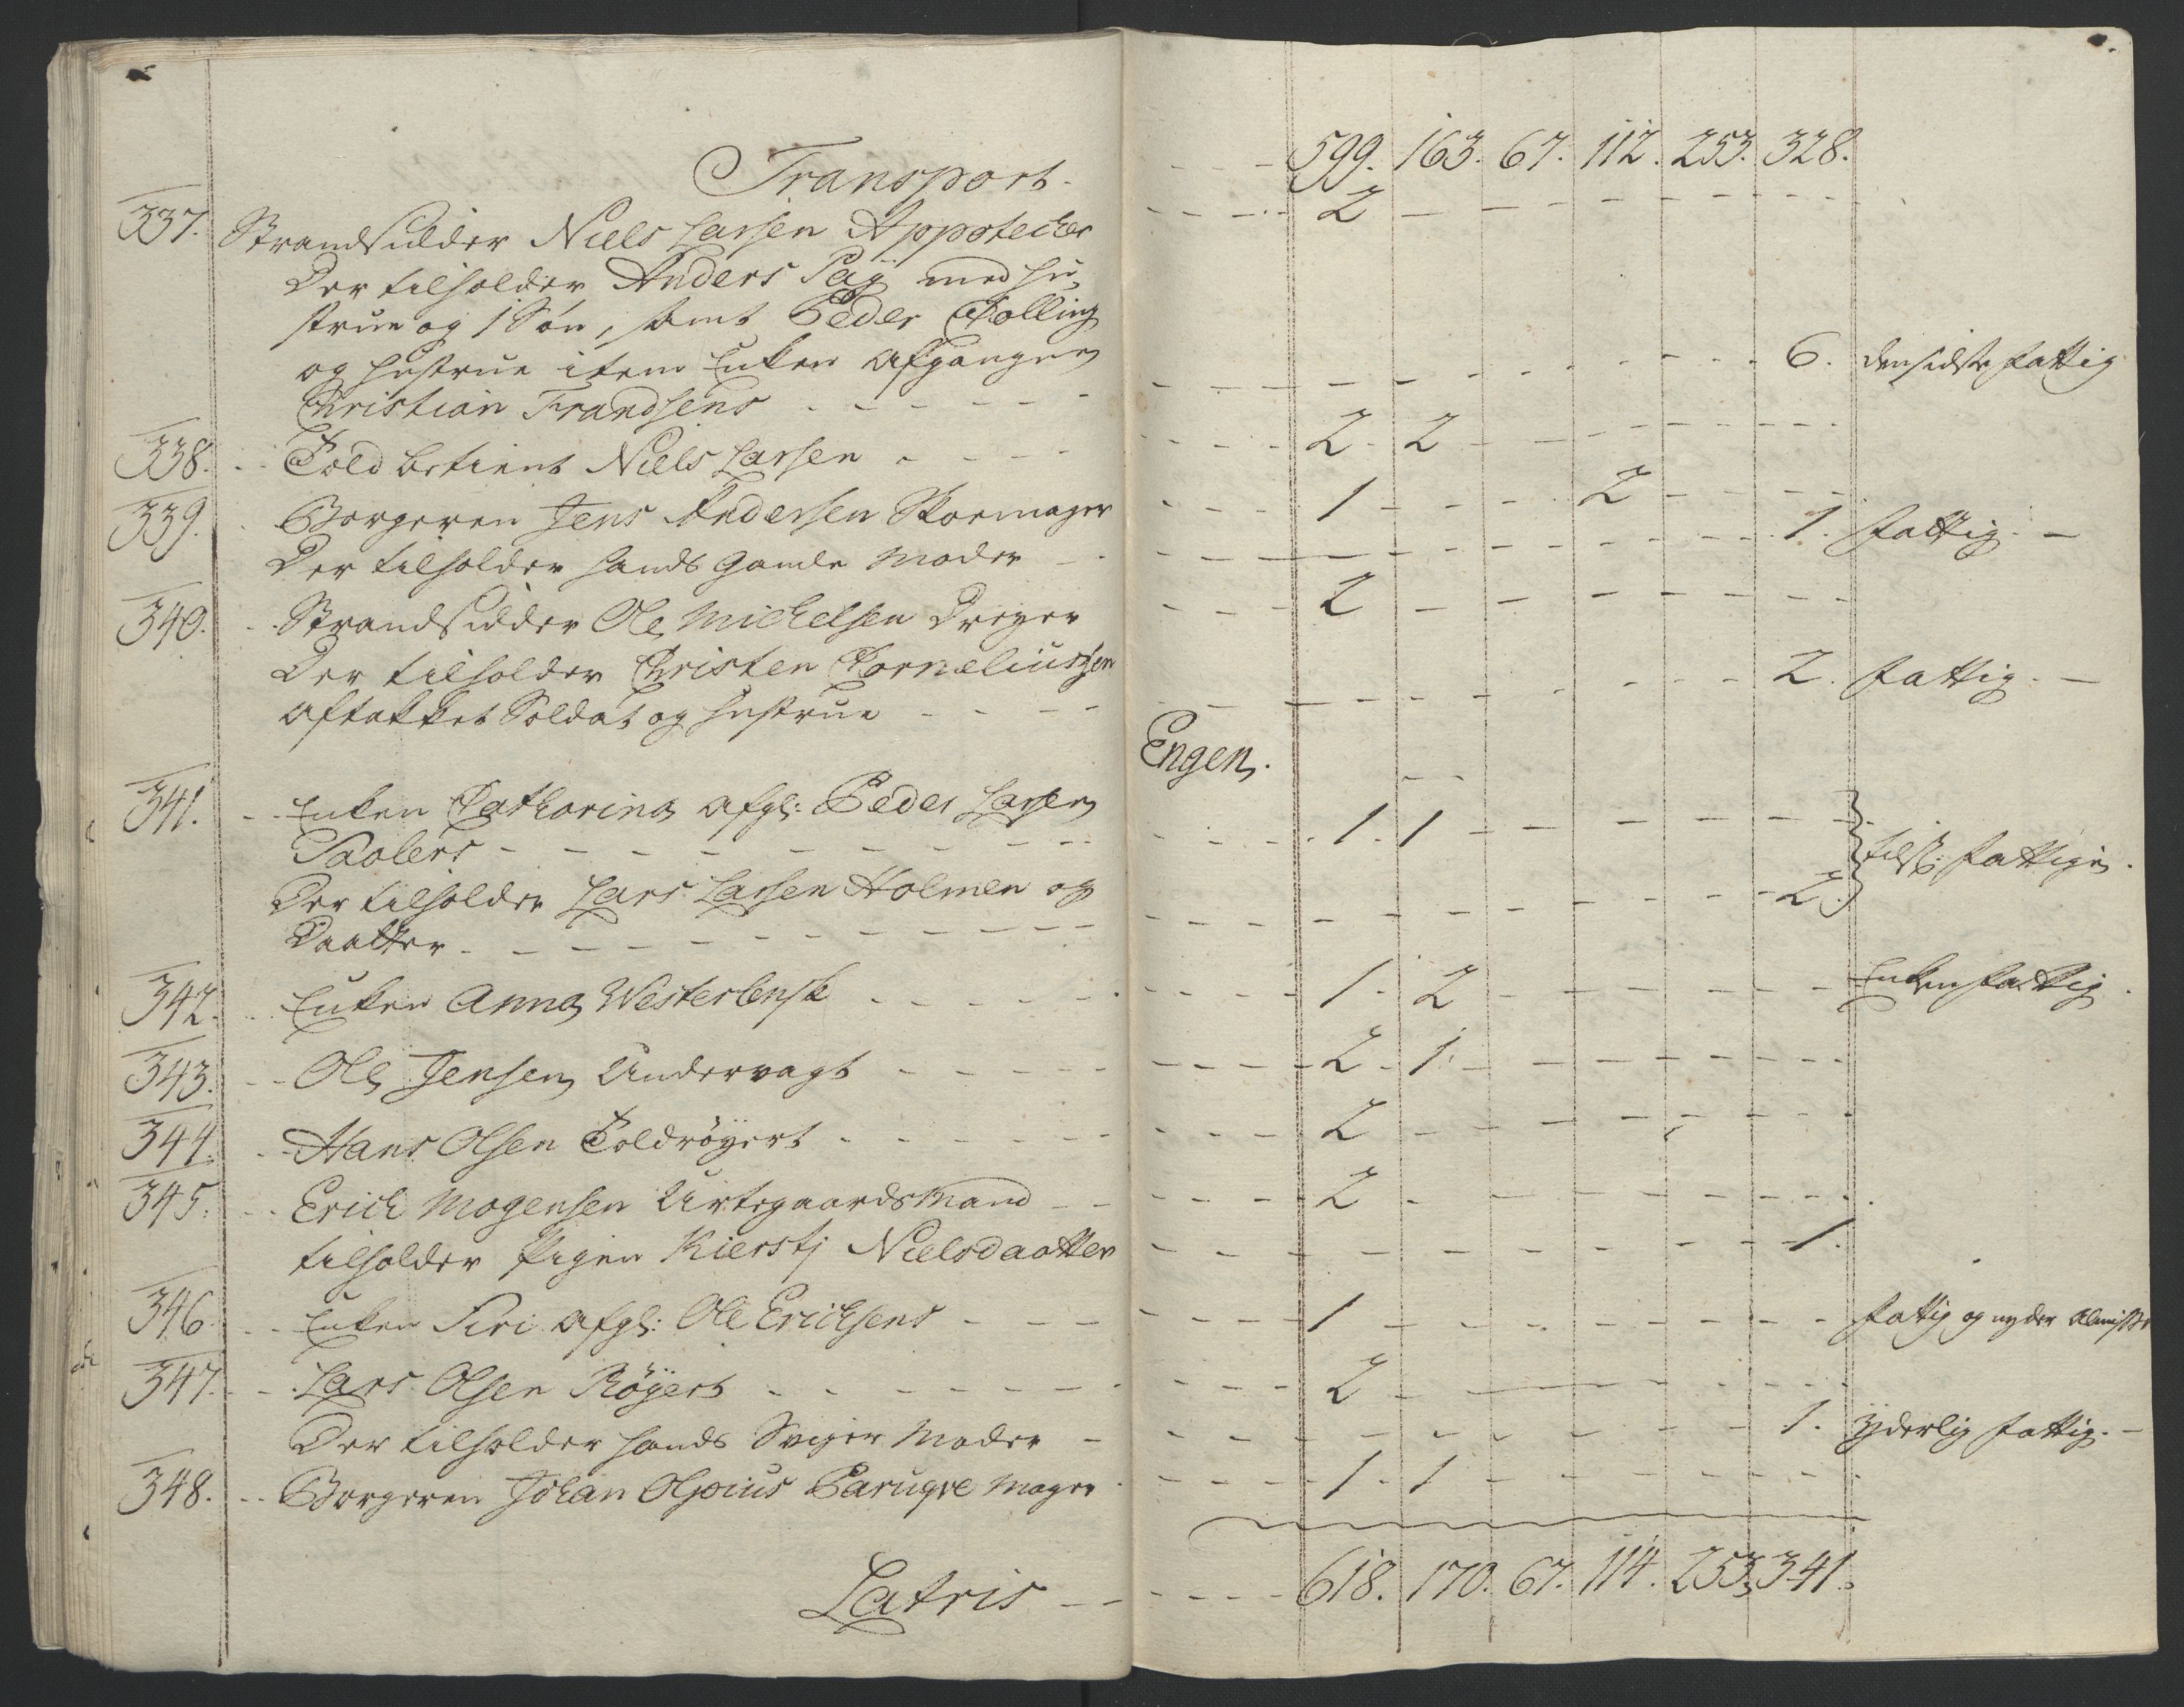 Transport - - 599. 163. 67. 112. 253. 328.
337. Strandsidder Niels Larsen Appotecher - - 2
Der tilholder Anders Paj med hu,
strue og 1 Søn, samt Peder Colling
og hustrue item Enken Afgangne
Christian Frandsens - - 6. den sidste fattig
338. Told betient Niels Larsen - - 2 - 2
339. Borgeren Jens Andersen Skoemager - - 1 - - 2
Der tilholder hands gamle Moder - - 1. fattig. -
340. Strandsidder Ole Michelsen Dreyer - - 2
Der tilholder Christen Corneliussen
Aftakket Soldat og hustrue - - 2. fattig. -
Engen.
341. Enken Catharina Afgl: Peder Larsen
- - 1. 1
Der tilholder Lars Larsen Holmen og
Daatter - - 2. fattige.
342. Enken Anna Westerlensk - - 1. 2 Enken fattig
343. Ole Jensen Undervagt - - 2 - 1.
344. Hans Olsen Toldrøyert - - 2
345. Erich Mogensen Urtegaardsmand - - 2
tilholder Pigen Kierstj Nielsdaatter - - 1.
346. Enken Siri Afgl: Ole Erichsens - - 1 fattig og nyder Almisse
347. Lars Olsen Røyert - - 2
Der tilholder hands Sviger Moder - - 1. yderlig fattig. -
348. Borgeren Johan Olpius Paruqve Mager - - 1 - 1
Latris - - 618. 170. 67. 114. 253. 341.